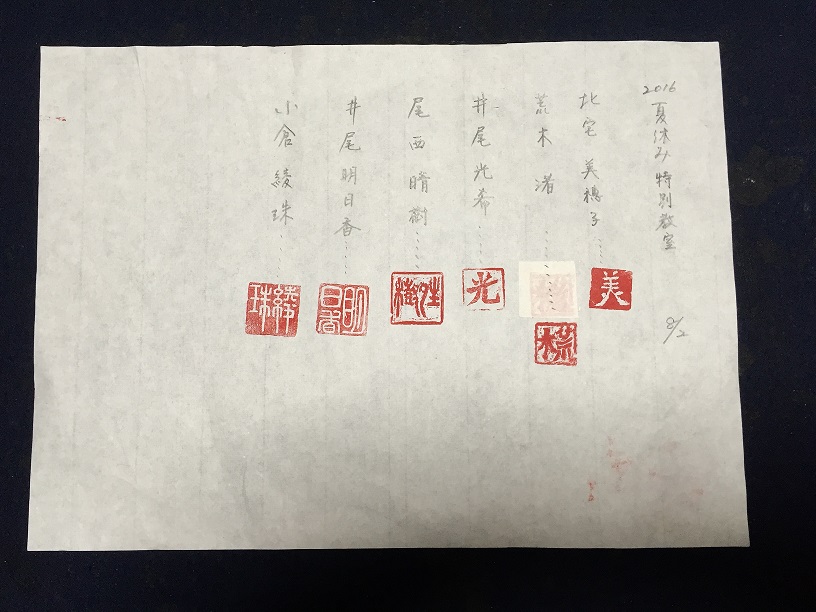 2016 夏休み特別教室 8/2
北宅 美穂子……
美
荒木 渚……
荒木
井尾光希……
光
尾西晴樹……
晴樹
井尾明日香……
明日香
小倉綾珠……
綾珠